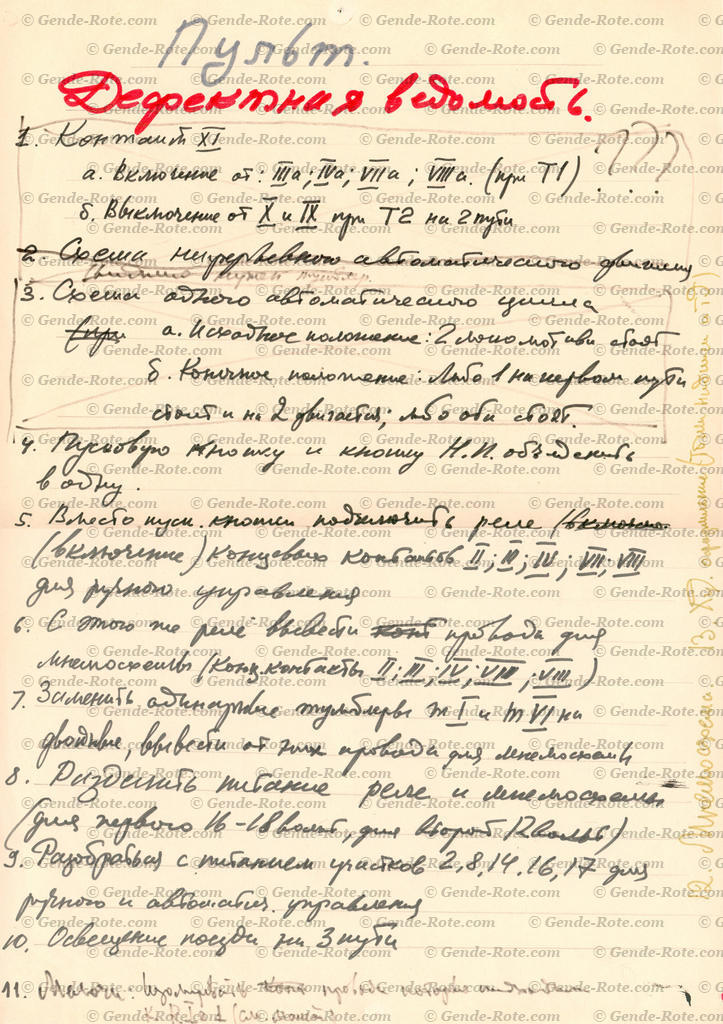 Пульт.
Дефектная ведомость.
1. Контакт XI ???
а. Включение от: IIIа; IVа; VIIа; VIIIа. (при Т1)
б. Выключение от X и IX при Т2 на 2 пути
2. Схема непрерывного автоматического движения
3. Схема одного автоматического цикла
(при а. Исходное положение: 2 локомотива стоят
б. Конечное положение: Либо 1 на первом пути
стоит и на 2 двигается; либо оба стоят.
4. Пусковую кнопку и кнопку Н.П. объеденить
в одну.
5. Вместо пуск. кнопки подключить реле (включ
(включение) концевых контактов II; III; IV; VII; VIII
для ручного управления
6. С этого же реле вывести конт провода для
мнемосхемы (конц.контакты II; III; IV; VIII; VIII)
7. Заменить одинарные тумблеры т I и т VI на
двойные, вывести от них провода для мнемосхемы
8. Разделить питание реле и мнемосхемы
(для первого 16-18 вольт, для второй 12 вольт)
9. Разобраться с питанием участков 2, 8, 14, 16, 17 для
ручного и автоматич. управления
10. Освещение поезда на 3 пути
11. Мелочи. Изолировать конт провода которые
12. Мнемосхема
13.
© Gende-Rote.com